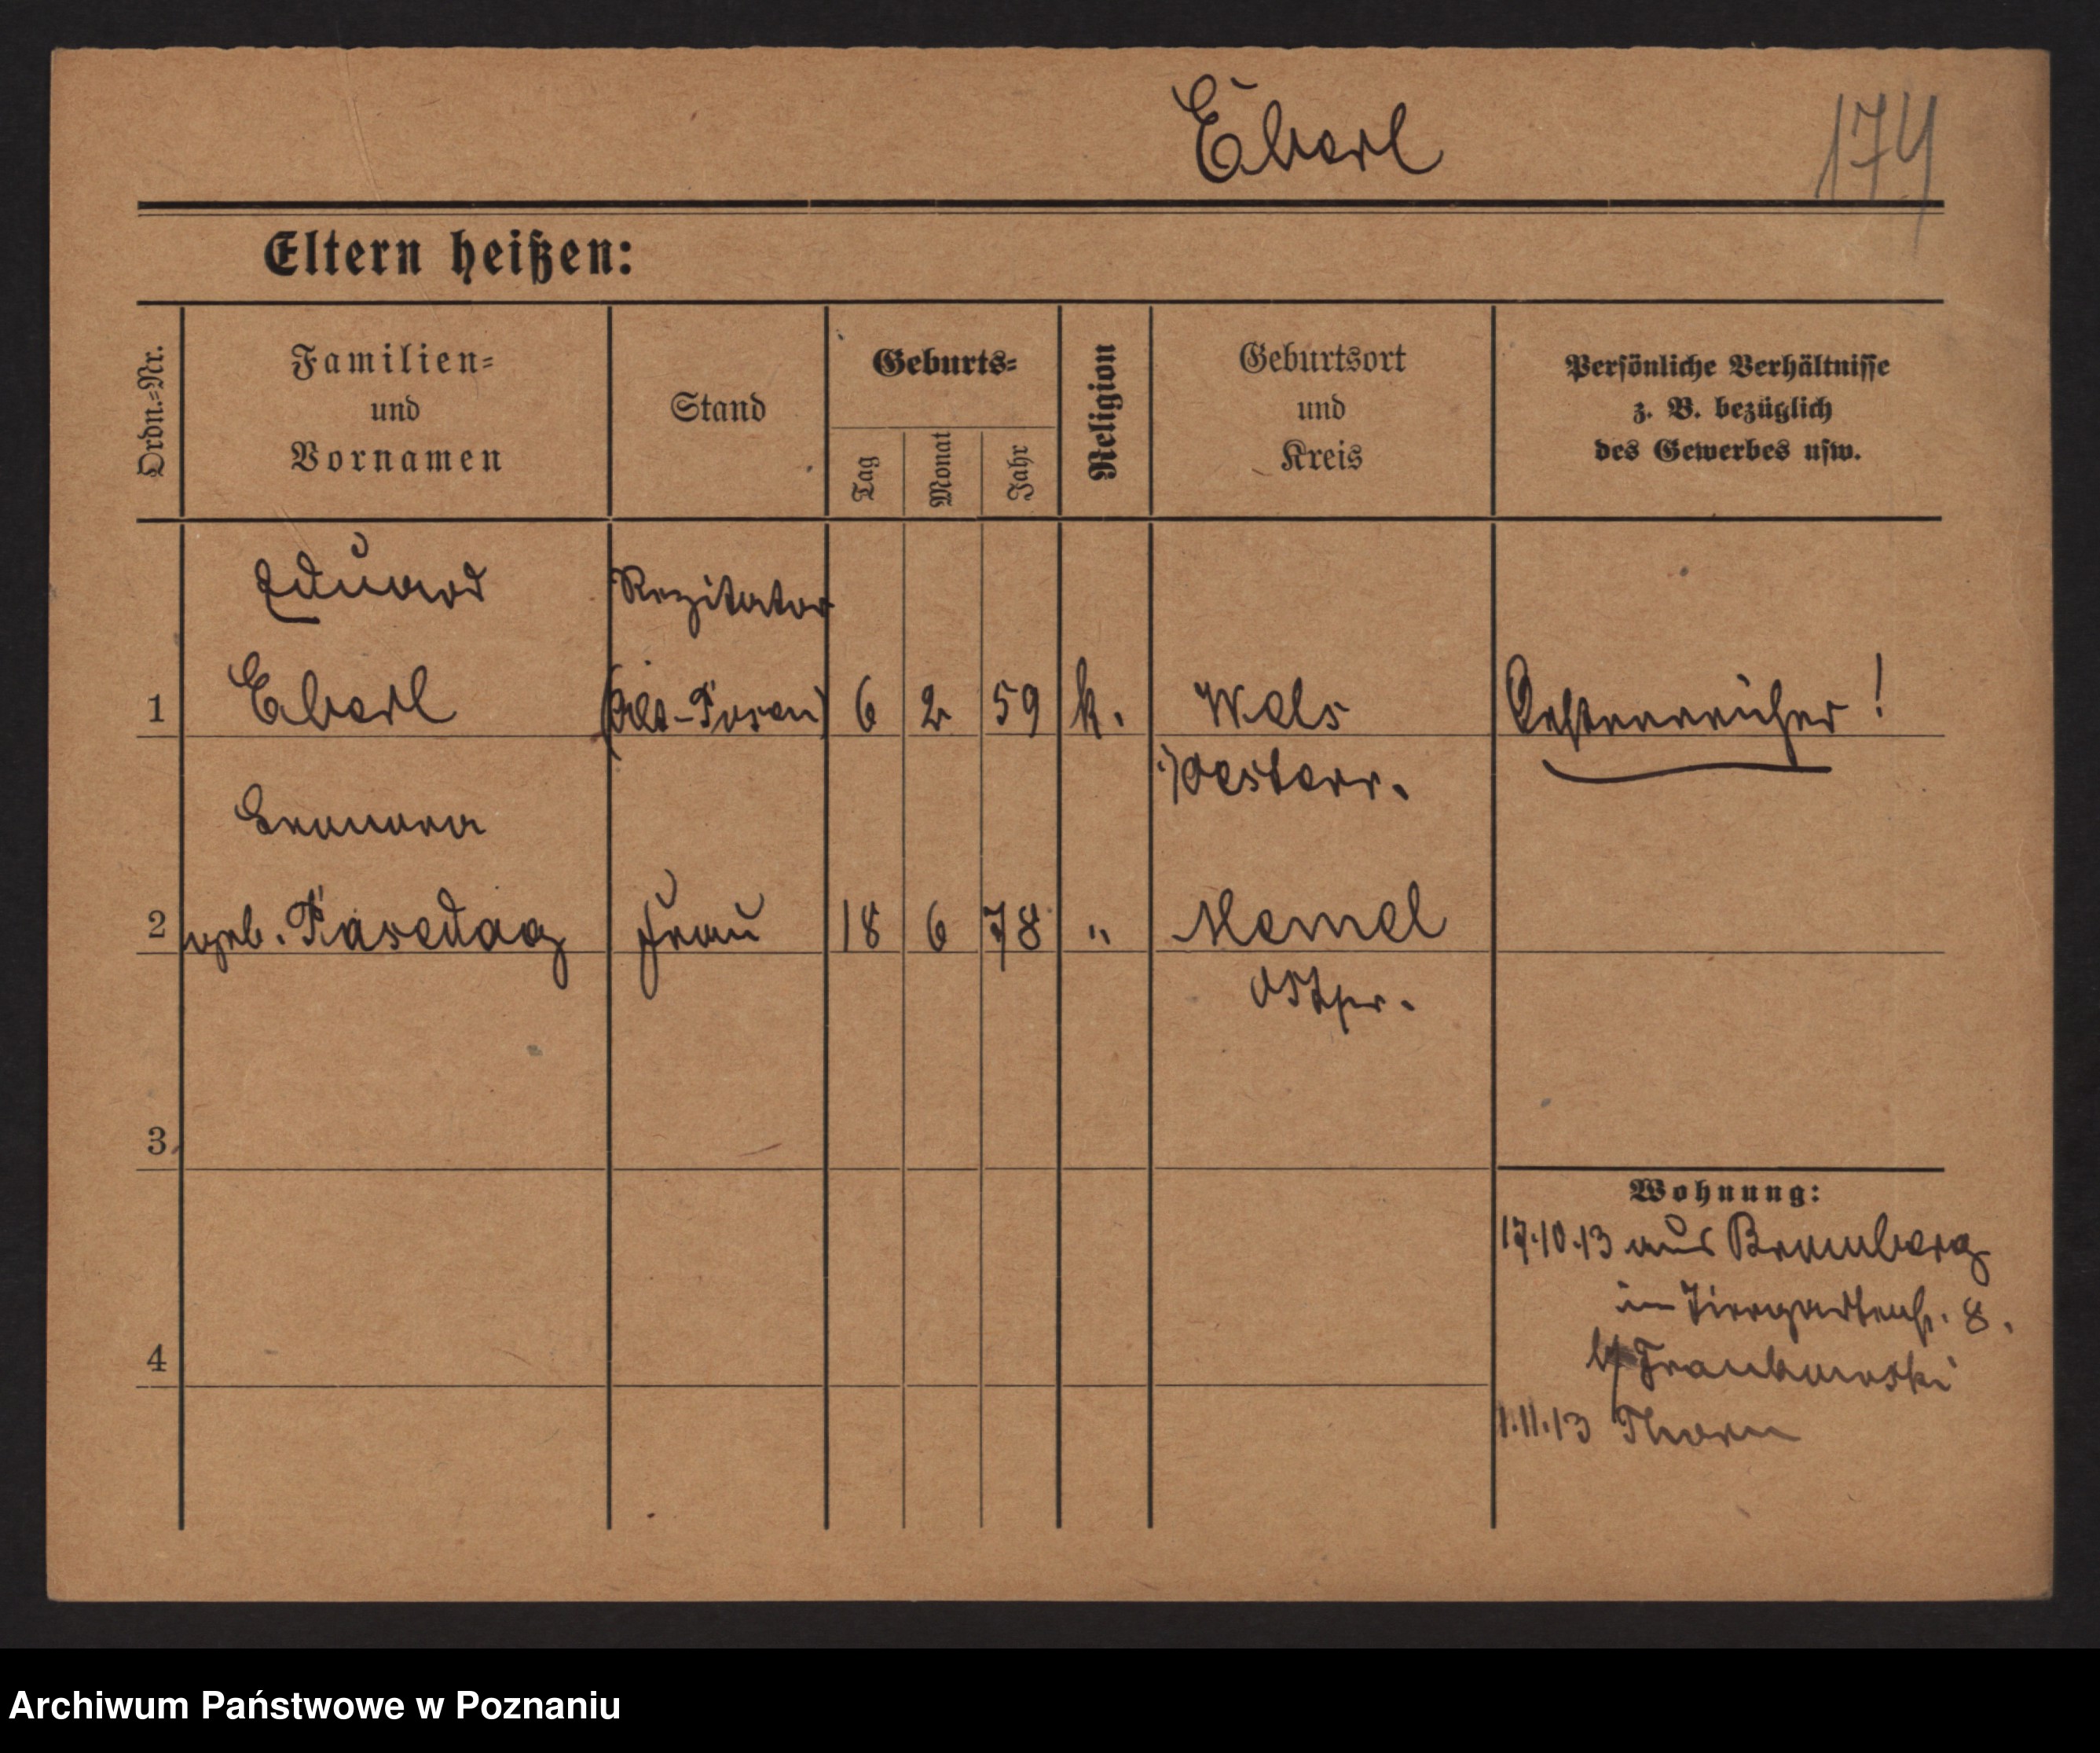 Eberl
174
Eltern heißen:
Ordn.-Nr.
Familien-
und
Vornamen
Stand
Geburts-
Tag
Monat
Jahr
Religion
Geburtsort
und
Kreis
Persönliche Verhältnisse
z. B. bezüglich
des Gewerbes usw.
Eduard
Rezitator
1 Eberl (Alt-Posen) 6 2 59 k. Wels Oesterreicher!
i/Oesterr.
Eleonora
2 geb. Pasedag Frau 18 6 78 " Memel
Ostpr.
3
Wohnung:
17.10.13 aus Bromberg
in Tiergartenstr. 8.
4
b/ Frankowski
1.11.13 Thorn
Archiwum Państwowe w Poznaniu